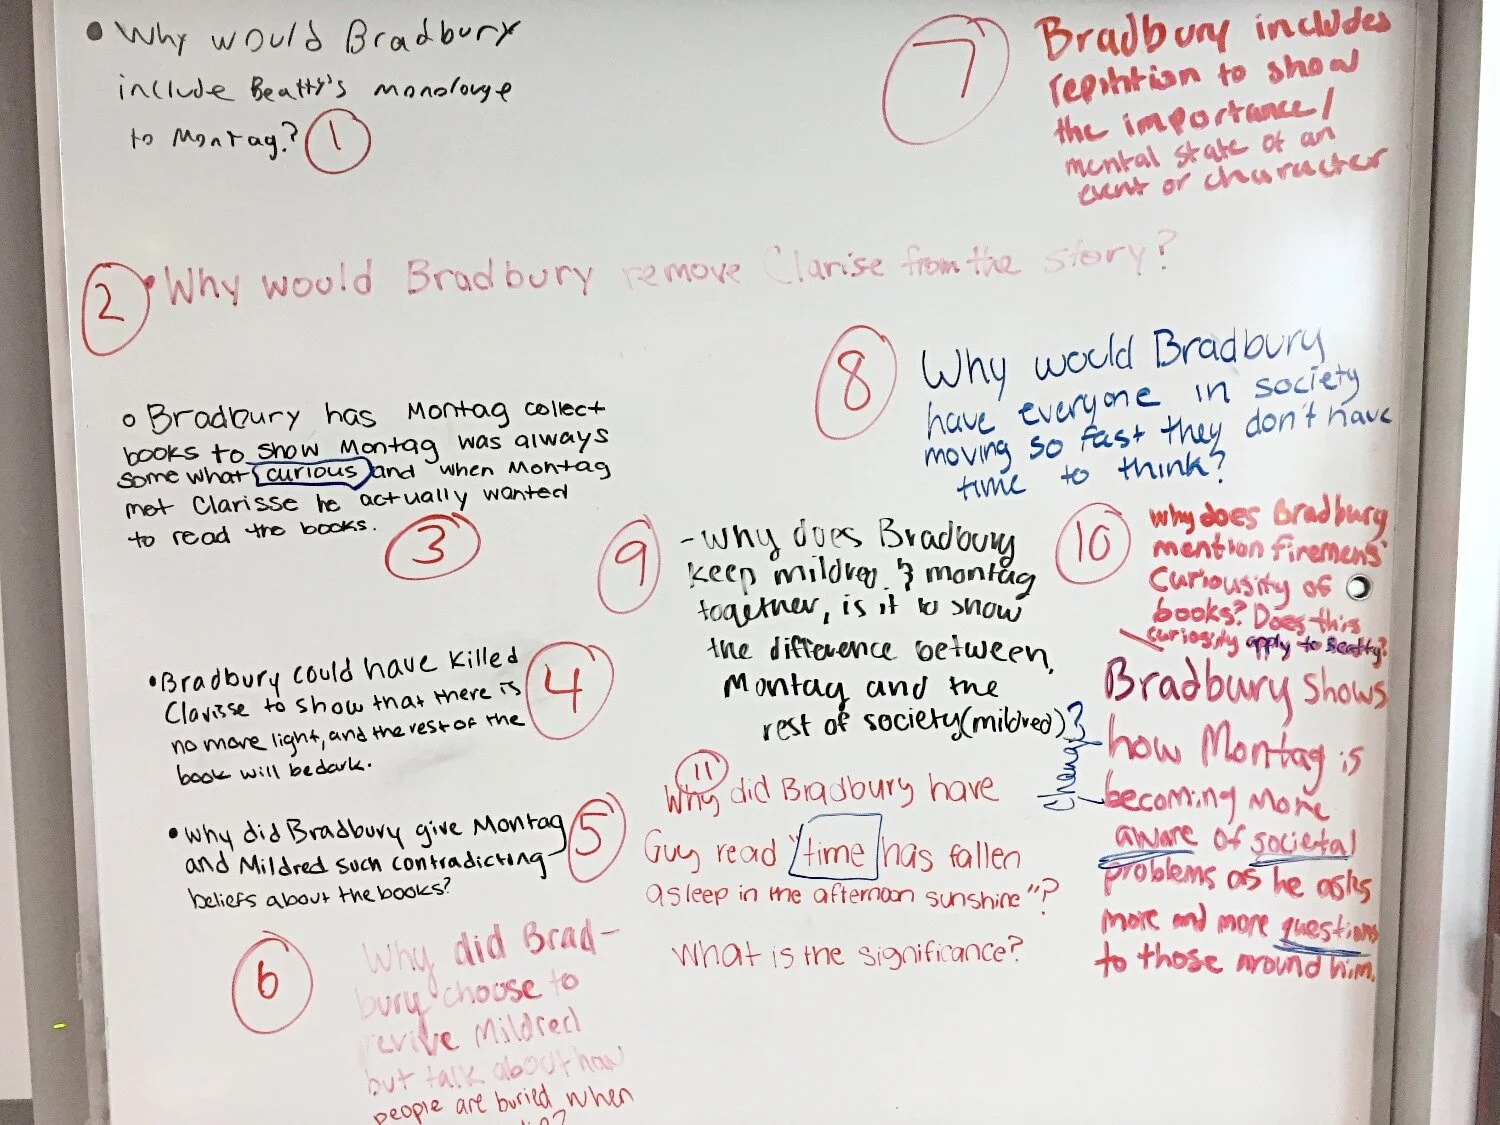 • Why would Bradbury
include Beatty's monolouge
to Montag? 1
2 • Why would Bradbury remove Clarise from the story?
o Bradbury has Montag collect
books to show Montag was always
some what curious and when Montag
met Clarisse he actually wanted
to read the books.
3
• Bradbury could have killed
Clarisse to show that there is
no more light, and the rest of the
book will be dark.
4
• Why did Bradbury give Montag
and Mildred such contradicting
beliefs about the books?
5
6
Why did Brad-
bury choose to
revive Mildred
but talk about how
people are buried when
7
Bradbury includes
repitition to show
the importance/
mental state of an
event or character
8
Why would Bradbury
have everyone in society
moving so fast they don't have
time to think?
9
- Why does Bradbury
keep mildred & montag
together, is it to show
the difference between
Montag and the
rest of society (mildred)?
10
Why does Bradbury
mention firemens'
Curiousity of
books? Does this
curiosity apply to Beatty?
Bradbury shows
how Montag is
becoming more
aware of societal
problems as he asks
more and more questions
to those around him.
change
11
Why did Bradbury have
Guy read "time has fallen
asleep in the afternoon sunshine"?
What is the significance?